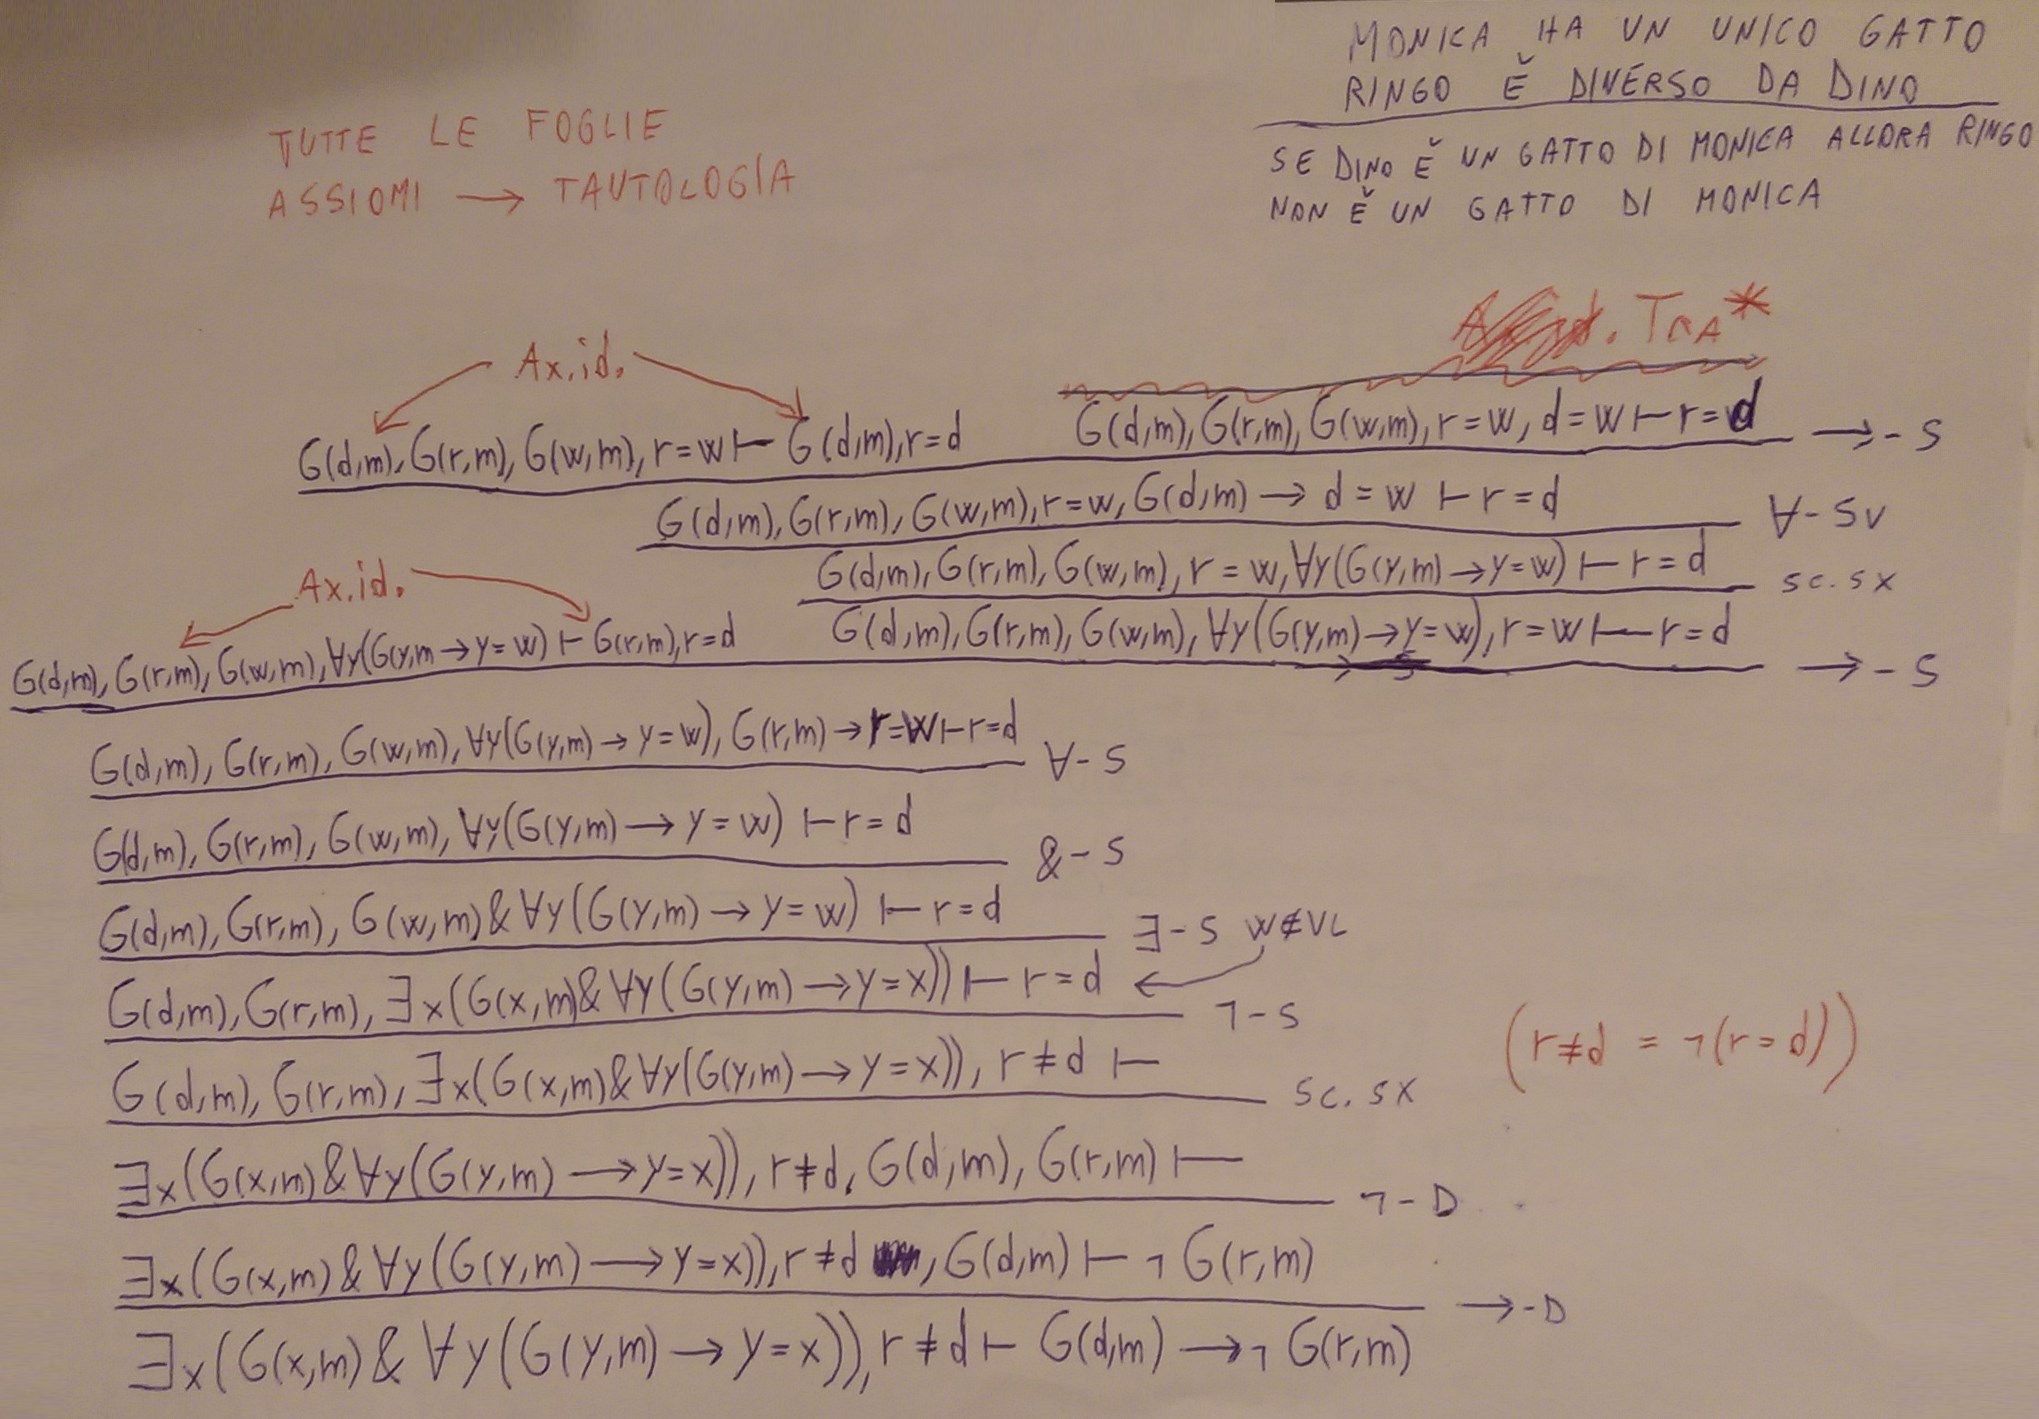 MONICA HA UN UNICO GATTO
RINGO È DIVERSO DA DINO
SE DINO È UN GATTO DI MONICA ALLORA RINGO
NON È UN GATTO DI MONICA
TUTTE LE FOGLIE
ASSIOMI → TAUTOLOGIA
Ax.id.
TRA*
G(d,m), G(r,m), G(w,m), r=w ⊢ G(d,m), r=d
G(d,m), G(r,m), G(w,m), r=w, d=w ⊢ r=d
→-S
G(d,m), G(r,m), G(w,m), r=w, G(d,m) → d=w ⊢ r=d
∀-Sv
G(d,m), G(r,m), G(w,m), r=w, ∀y(G(y,m) → y=w) ⊢ r=d
sc.sx
Ax.id.
G(d,m), G(r,m), G(w,m), ∀y(G(y,m → y=w) ⊢ G(r,m), r=d
G(d,m), G(r,m), G(w,m), ∀y(G(y,m) → y=w), r=w ⊢ r=d
→-S
G(d,m), G(r,m), G(w,m), ∀y(G(y,m) → y=w), G(r,m) → r=w ⊢ r=d
∀-S
G(d,m), G(r,m), G(w,m), ∀y(G(y,m) → y=w) ⊢ r=d
&-S
G(d,m), G(r,m), G(w,m) & ∀y(G(y,m) → y=w) ⊢ r=d
∃-S w∉VL
G(d,m), G(r,m), ∃x(G(x,m) & ∀y(G(y,m) → y=x)) ⊢ r=d
¬-S
G(d,m), G(r,m), ∃x(G(x,m) & ∀y(G(y,m) → y=x)), r≠d ⊢
(r≠d = ¬(r=d))
sc.sx
∃x(G(x,m) & ∀y(G(y,m) → y=x)), r≠d, G(d,m), G(r,m) ⊢
¬-D
∃x(G(x,m) & ∀y(G(y,m) → y=x)), r≠d, G(d,m) ⊢ ¬G(r,m)
→-D
∃x(G(x,m) & ∀y(G(y,m) → y=x)), r≠d ⊢ G(d,m) → ¬G(r,m)